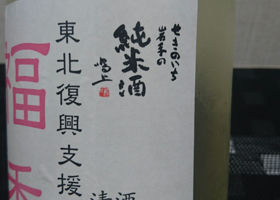 せきのいち
岩手の
純米酒
東北復興支援
福香
清酒